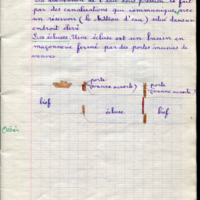 par des canalisations qui communique avec
un réservoir ( le château d'eau ) situé dans un
endroit élevé
Les écluses. Une écluse est un bassin en
maçonnerie fermé par des portes munies de
vannes
porte
(vanne ouverte)
porte
(vanne ouverte)
bief
écluse
bief